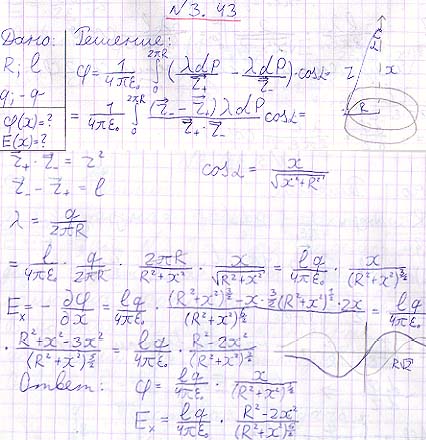 №3.43
Дано: Решение:
R; l
q; -q
φ(x)=?
E(x)=?
φ = 1/4πε₀ ∫₀^2πR (λdP/r₊ - λdP/r₋)·cosα =
= 1/4πε₀ ∫₀^2πR (r₋ - r₊)λdP/r₊·r₋ cosα =
r₊·r₋ = r² cosα = x/√x²+R²
r₋ - r₊ = l
λ = q/2πR
= l/4πε₀ · q/2πR · 2πR/R²+x² · x/√R²+x² = lq/4πε₀ · x/(R²+x²)^3/2
Eₓ = - ∂φ/∂x = lq/4πε₀ · (R²+x²)^3/2 - x·3/2(R²+x²)^1/2·2x/(R²+x²)^6/2 = lq/4πε₀
· R²+x²-3x²/(R²+x²)^5/2 = lq/4πε₀ · R²-2x²/(R²+x²)^5/2
R√2
Ответ: φ = lq/4πε₀ · x/(R²+x²)^3/2
Eₓ = lq/4πε₀ · R²-2x²/(R²+x²)^5/2